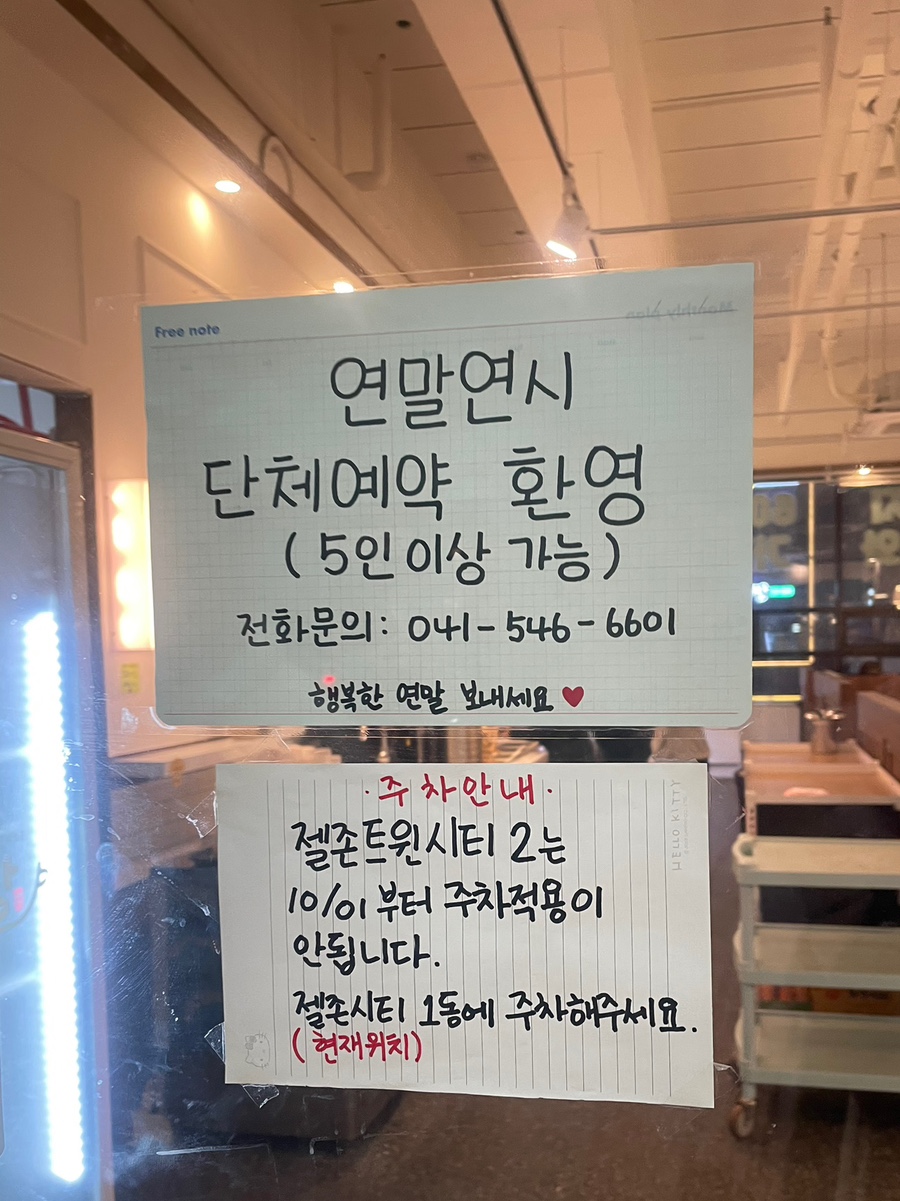 Free note
Monthly plan
연말연시
단체예약 환영
( 5인 이상 가능)
전화문의: 041-546-6601
행복한 연말 보내세요 ♥
·주차안내·
젤존트윈시티 2는
10/01 부터 주차적용이
안됩니다.
젤존시티 1동에 주차해주세요.
( 현재위치)
HELLO KITTY